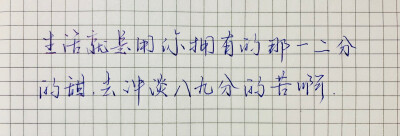 生活就是用你拥有的那一二分
的甜，去冲淡八九分的苦啊.